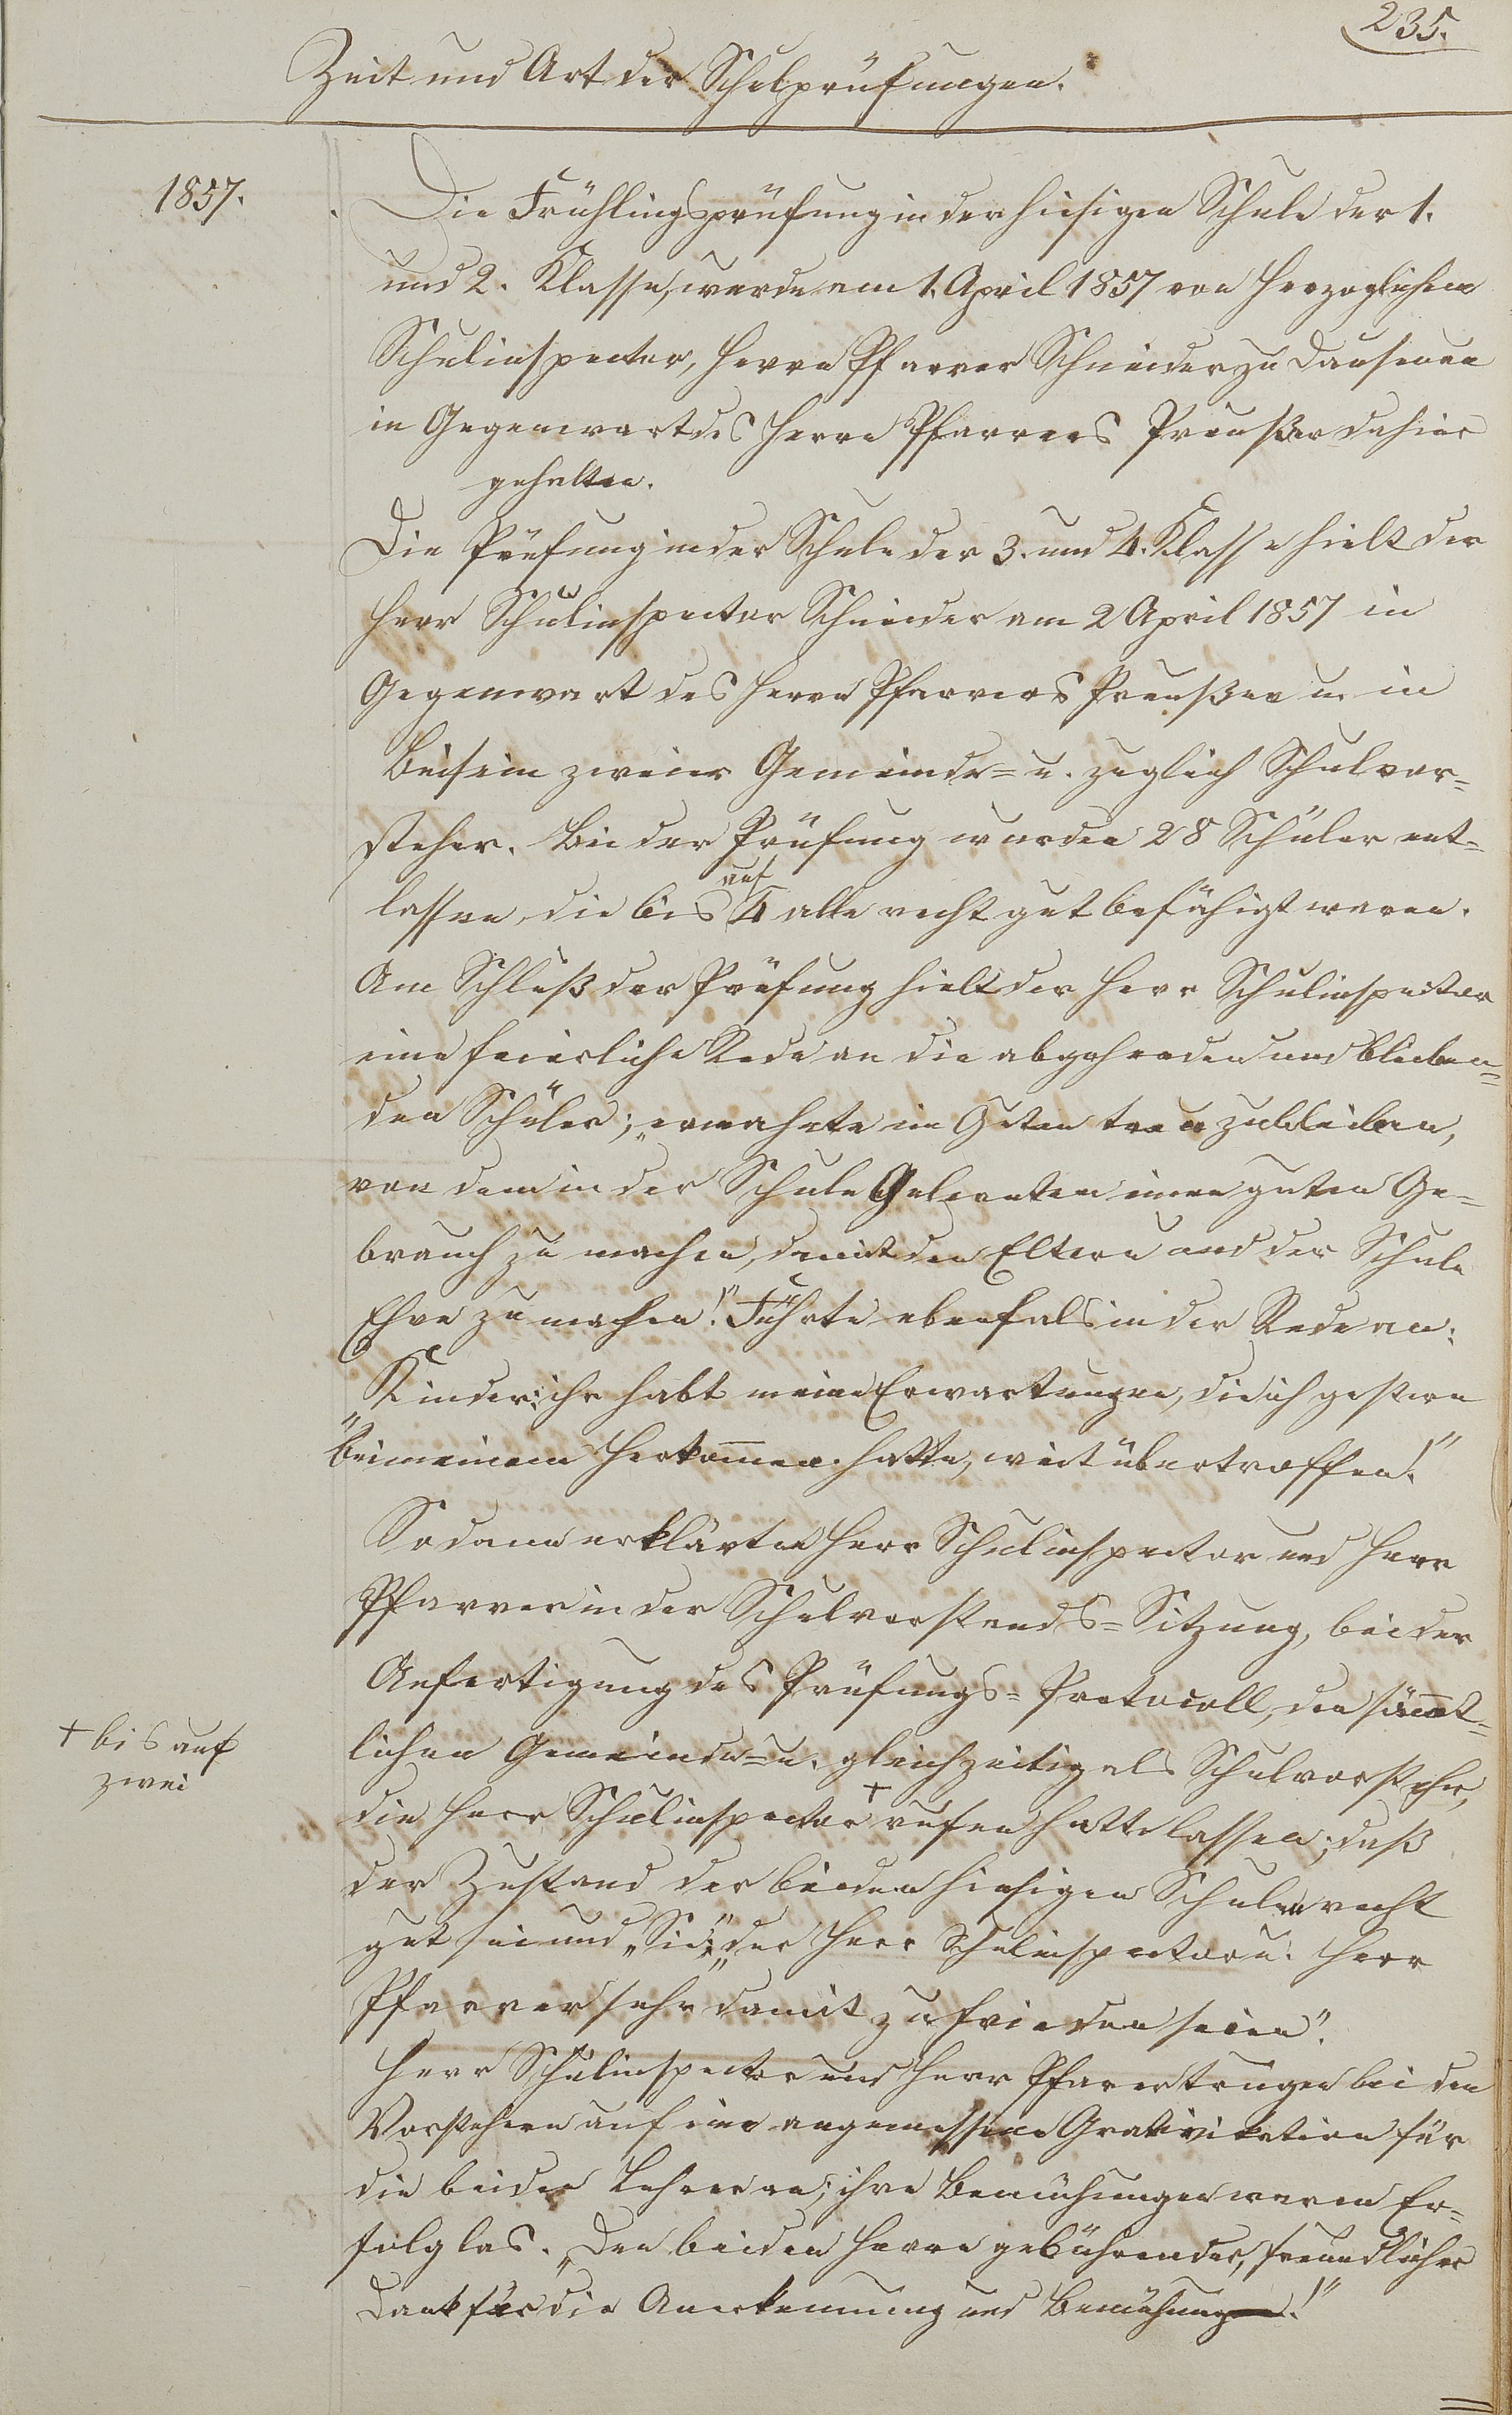 235.
Zeit und Art der Schulprüfungen.
1857.
Die Frühlingsprüfung in der hiesigen Schule der 1.
und 2. Klasse, wurde am 1. April 1857 von Herzoglichem
Schulinspector, Herrn Pfarrer Schneider zu Dausenau
in Gegenwart des Herrn Pfarrers Preußer dahier
gehalten.
Die Prüfung in der Schule der 3. und 4. Klasse hielt der
Herr Schulinspector Schneider am 2 April 1857 in
Gegenwart des Herrn Pfarrers Preußer u. in
Beisein zweier Gemeinde= u. zuglich Schulvor=
steher. Bei der Prüfung wurden 28 Schüler ent=
lassen, die bis auf 4 alle recht gut befähigt waren.
Am Schluß der Prüfung hielt der Herr Schulinspector
eine feierliche Rede an die abgehenden und bleiben=
den Schüler; „ermahnte im Guten treu zu bleiben,
von dem in der Schule Gelernten einen guten Ge=
brauch zu machen, damit den Eltern und der Schule
Ehre zu machen!" Führte ebenfals in der Rede an:
„Kinder: ihr habt meine Erwartungen, die ich gestern
bei meinem Herkommen hatte, weit übertroffen!"
Sodann erklärten Herr Schulinspector und Herr
Pfarrer in der Schulvorstands=Sitzung, bei der
Anfertigung des Prüfungs=Protocoll, den sämmt=
lichen Gemeinde= u. gleichzeitig als Schulvorsteher,
die Herr Schulinspector + rufen hatte lassen; daß
+ bis auf
zwei
der Zustand der beiden hiesigen Schulen recht
gut sei und „Sie", der Herr Schulinspector u. Herr
Pfarrer sehr damit zufrieden seien".
Herr Schulinspector und Herr Pfarrer trugen bei den
Vorstehern auf eine angemessene Grativikation für
die beiden Lehrer an; ihre Bemühungen waren Er=
folglos. „Den beiden Herrn gebührender, freundlicher
Dank für die Anerkennung und Bemühung!"